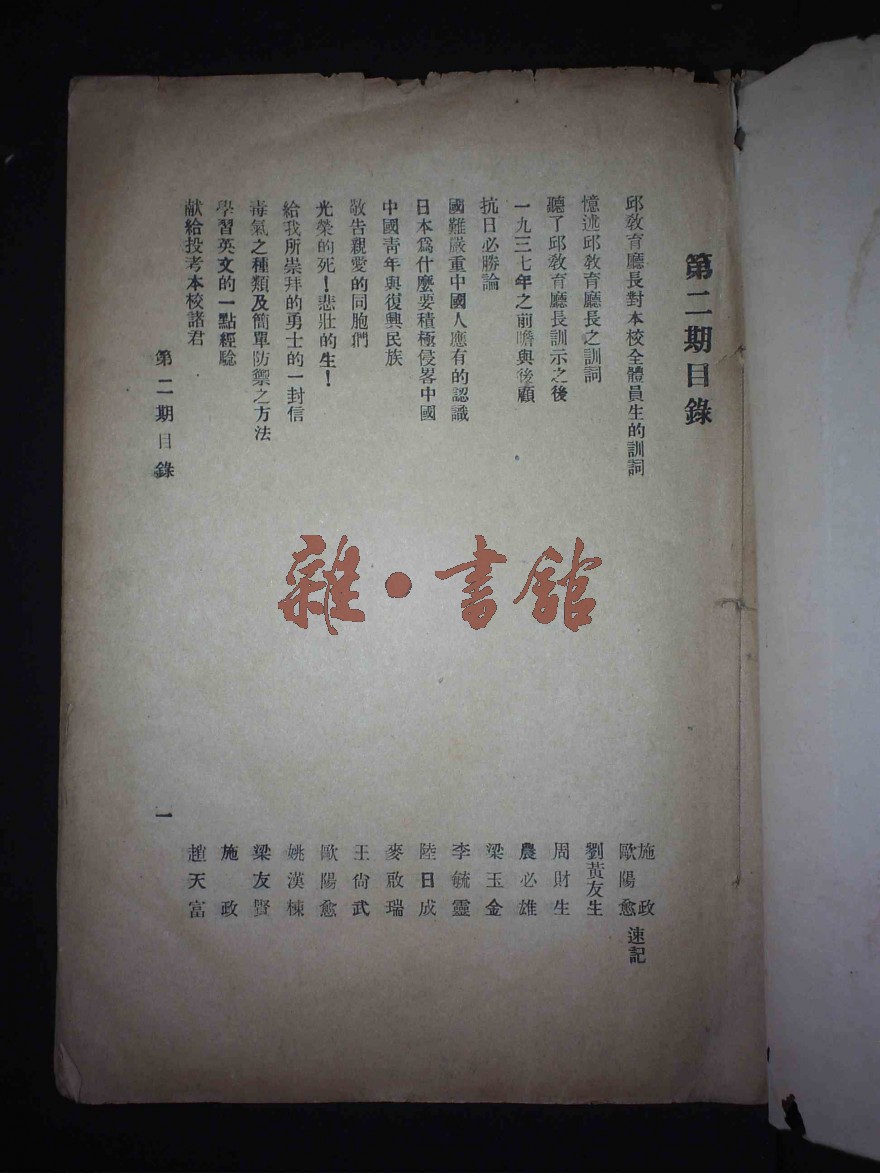 第二期目錄
邱教育廳長對本校全體員生的訓詞
施政 歐陽愈 速記
憶述邱教育廳長之訓詞
劉黃友生
聽了邱教育廳長訓示之後
周財生
一九三七年之前瞻與後顧
農必雄
抗日必勝論
梁玉金
國難嚴重中國人應有的認識
李毓靈
日本爲什麼要積極侵畧中國
陸日成
中國靑年與復興民族
麥啟瑞
敬告親愛的同胞們
王尙武
光榮的死!悲壯的生!
歐陽愈
給我所崇拜的勇士的一封信
姚漢棟
毒氣之種類及簡單防禦之方法
梁友賢
學習英文的一點經驗
施政
献給投考本校諸君
趙天富
第二期目錄
一
雜·書館